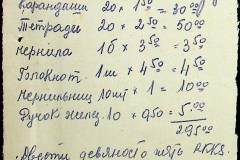 Карандаши 20 × 1 50 = 30 00
Тетради 20 × 2 50 = 50 00
Чернила 1б × 3 50 = 3 50
Блокнот 1 шт × 4 50 = 4 50
Чернильниц 10 шт × 1 = 10
Ручок 10 × 0 50 = 5.00
295 00
Двести девяносто пять